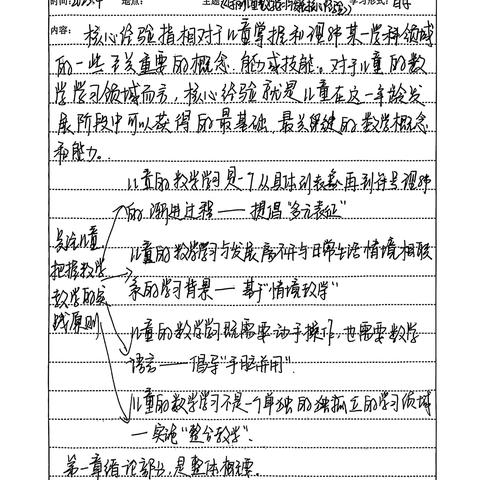 时间: 地点: 主题 学习形式:
内容: 核心经验指相对于儿童掌握和理解某一学科领域
的一些至关重要的概念、能力或技能。对于儿童的数
学学习领域而言,核心经验就是儿童在这一年龄发
展阶段中可以获得的最基础、最关键的数学概念
和能力。
儿童的数学学习是一个从具体到表象再到符号理解
的渐进过程——提倡“多元表征”
关注儿童,
把握数学
教学的实
践原则
儿童的数学学习与发展离不开与日常生活情境相联
系的学习背景——基于“情境教学”
儿童的数学学习既需要动手操作,也需要数学
语言——倡导“手脑并用”.
儿童的数学学习不是一个单独的独孤立的学习领域
—实施“整合教学”.
第一章绪论部分,是整体概理.